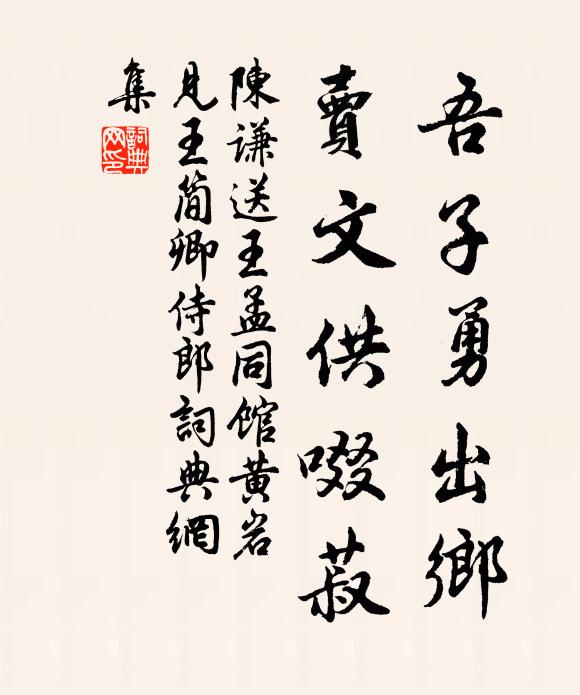 吾子勇出鄉
賣文供啜菽
陳謙送王孟同館黃岩
見王简卿侍郎詞典網
集
詞典
网印